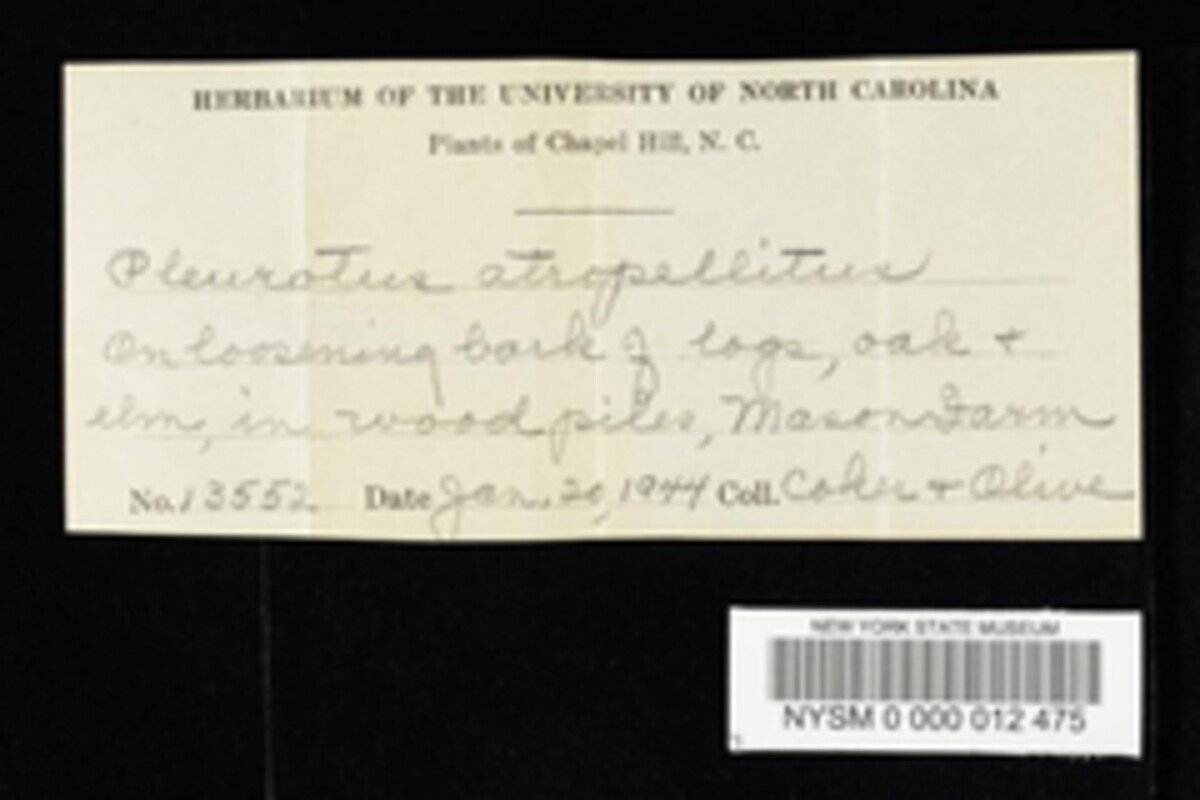 HERBARIUM OF THE UNIVERSITY OF NORTH CAROLINA
Plants of Chapel Hill, N. C.
Pleurotus atropellitus
On loosening bark of logs, oak +
elm, in wood piles, Mason Farm
No. 13552 Date Jan. 20, 1944 Coll. Coker + Olive
NEW YORK STATE MUSEUM
NYSM 0 000 012 475